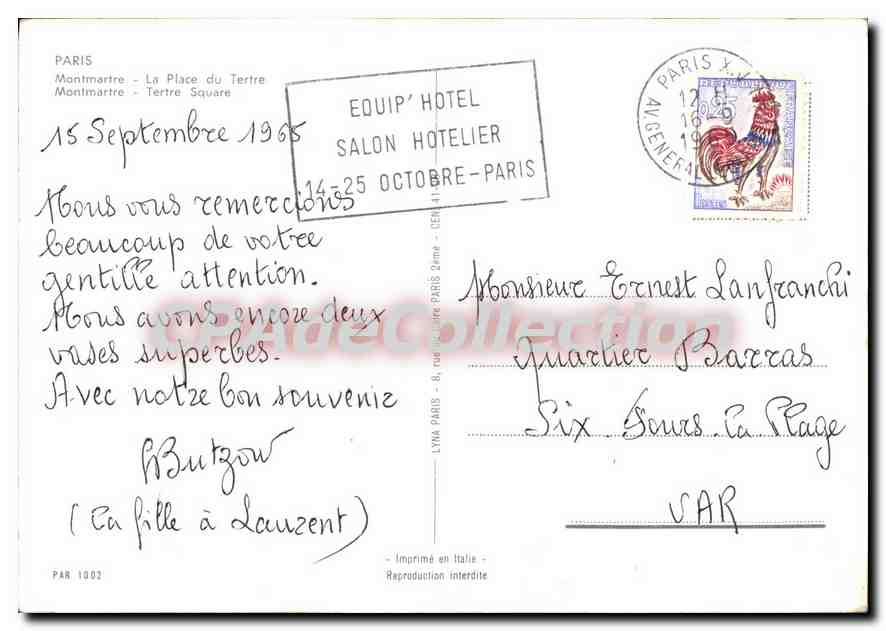 PARIS
Montmartre - La Place du Tertre
Montmartre - Tertre Square
15 Septembre 1965
Nous vous remercions
beaucoup de votre
gentille attention.
Nous avons encore deux
vases superbes.
Avec notre bon souvenir
Butzow
(La fille à Laurent)
PAR 1002
EQUIP' HOTEL
SALON HOTELIER
14-25 OCTOBRE-PARIS
PARIS X
12 H
16-9
19
AV. GENERAL
0,25
LYNA PARIS - 8, rue PARIS 2ème - CEN.
Monsieur Ernest Lanfranchi
Quartier Barras
Six Fours La Plage
VAR
- Imprimé en Italie -
Reproduction interdite
CPAdeCollection